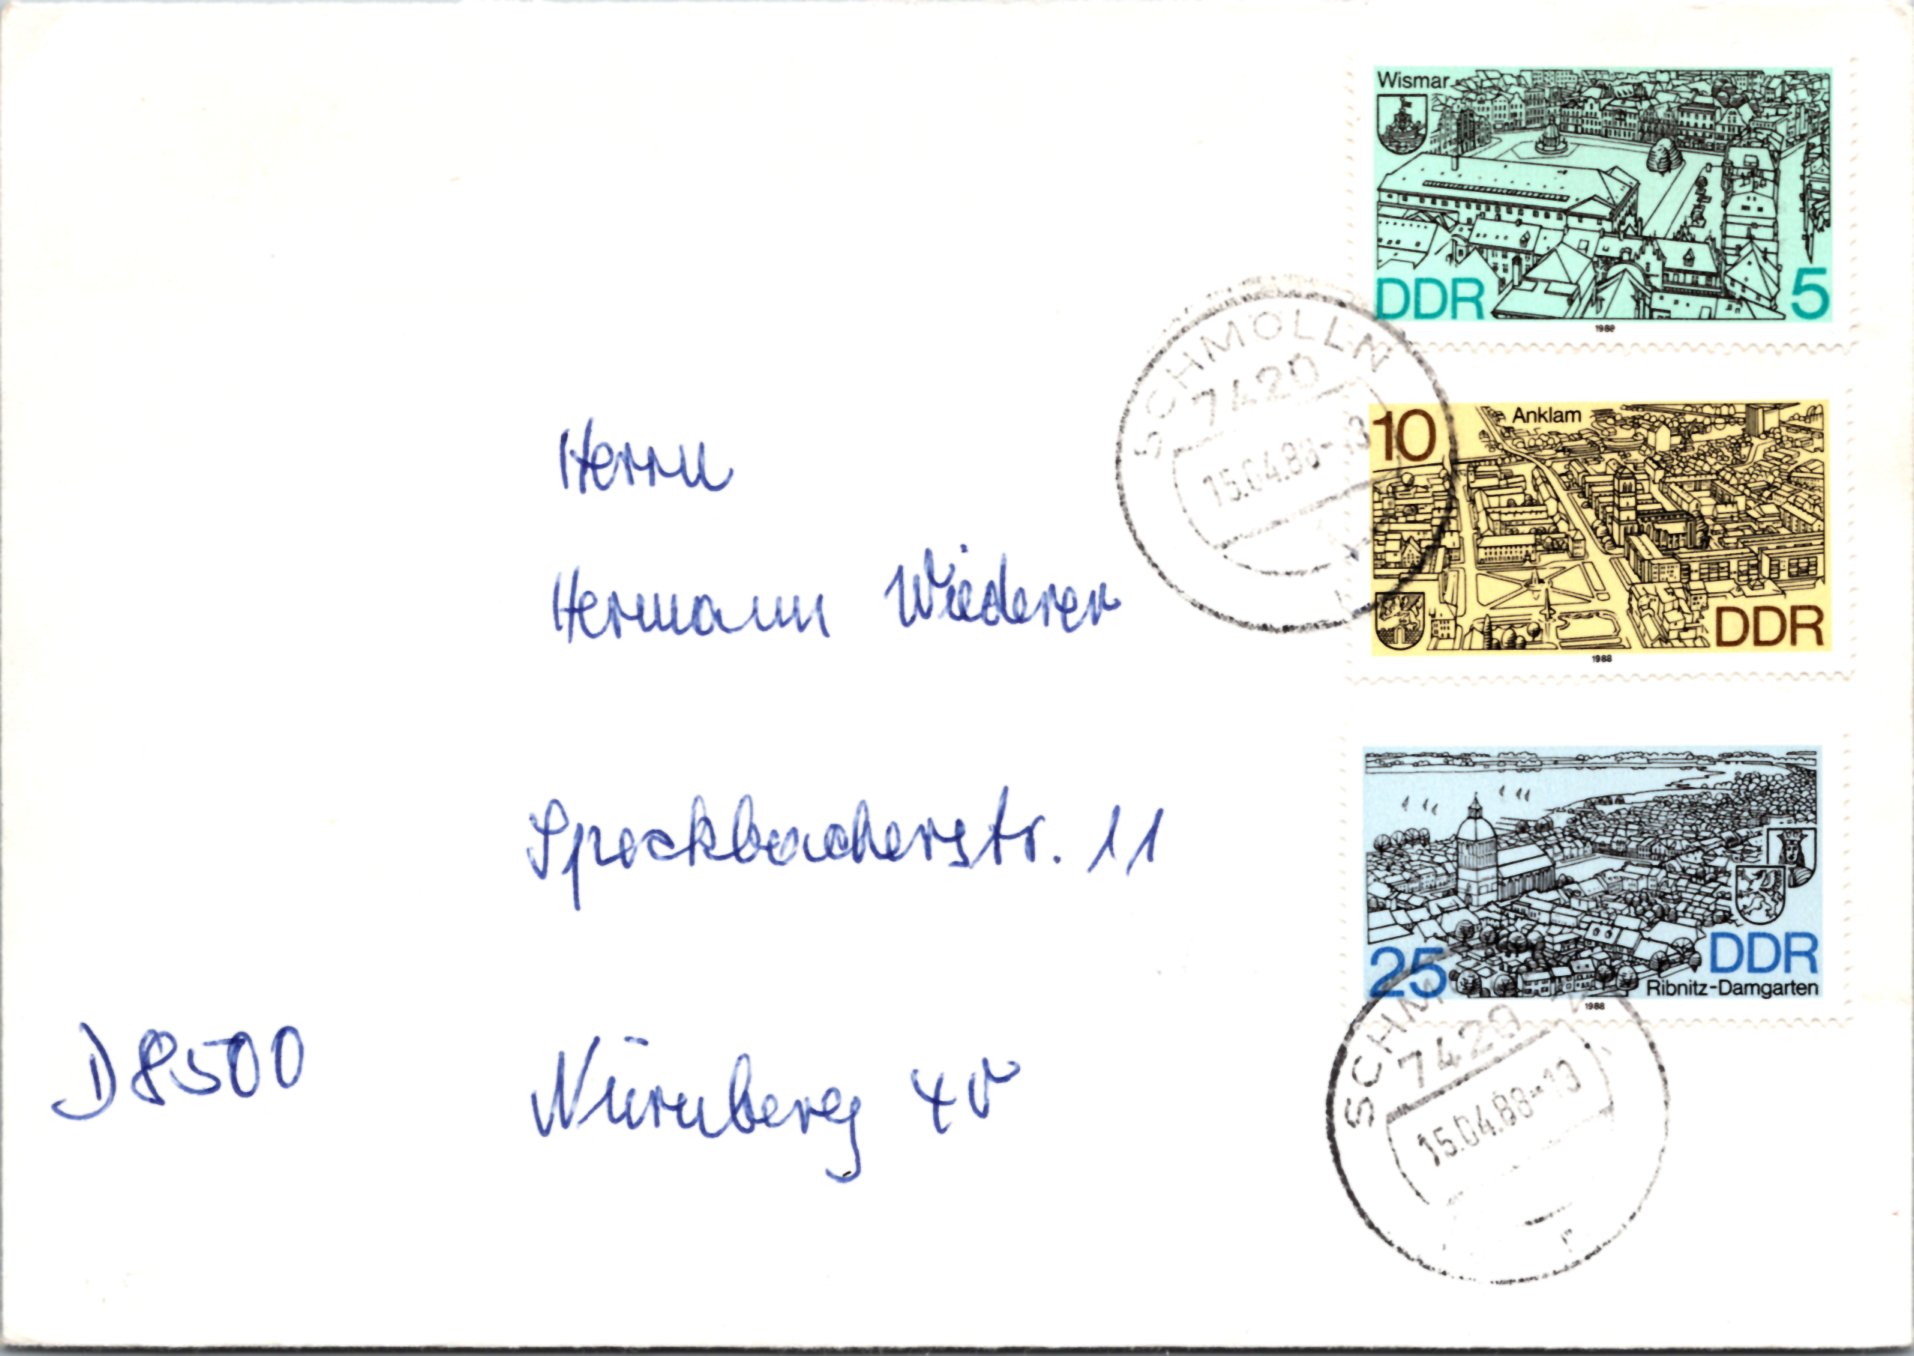 Wismar
DDR 5
1988
SCHMÖLLN
7420
15.04.88-13
10 Anklam
DDR
1988
Herrn
Hermann Wiederer
Speckbacherstr. 11
D 8500 Nürnberg 40
25 DDR
Ribnitz-Damgarten
1988
7420
15.04.88-13